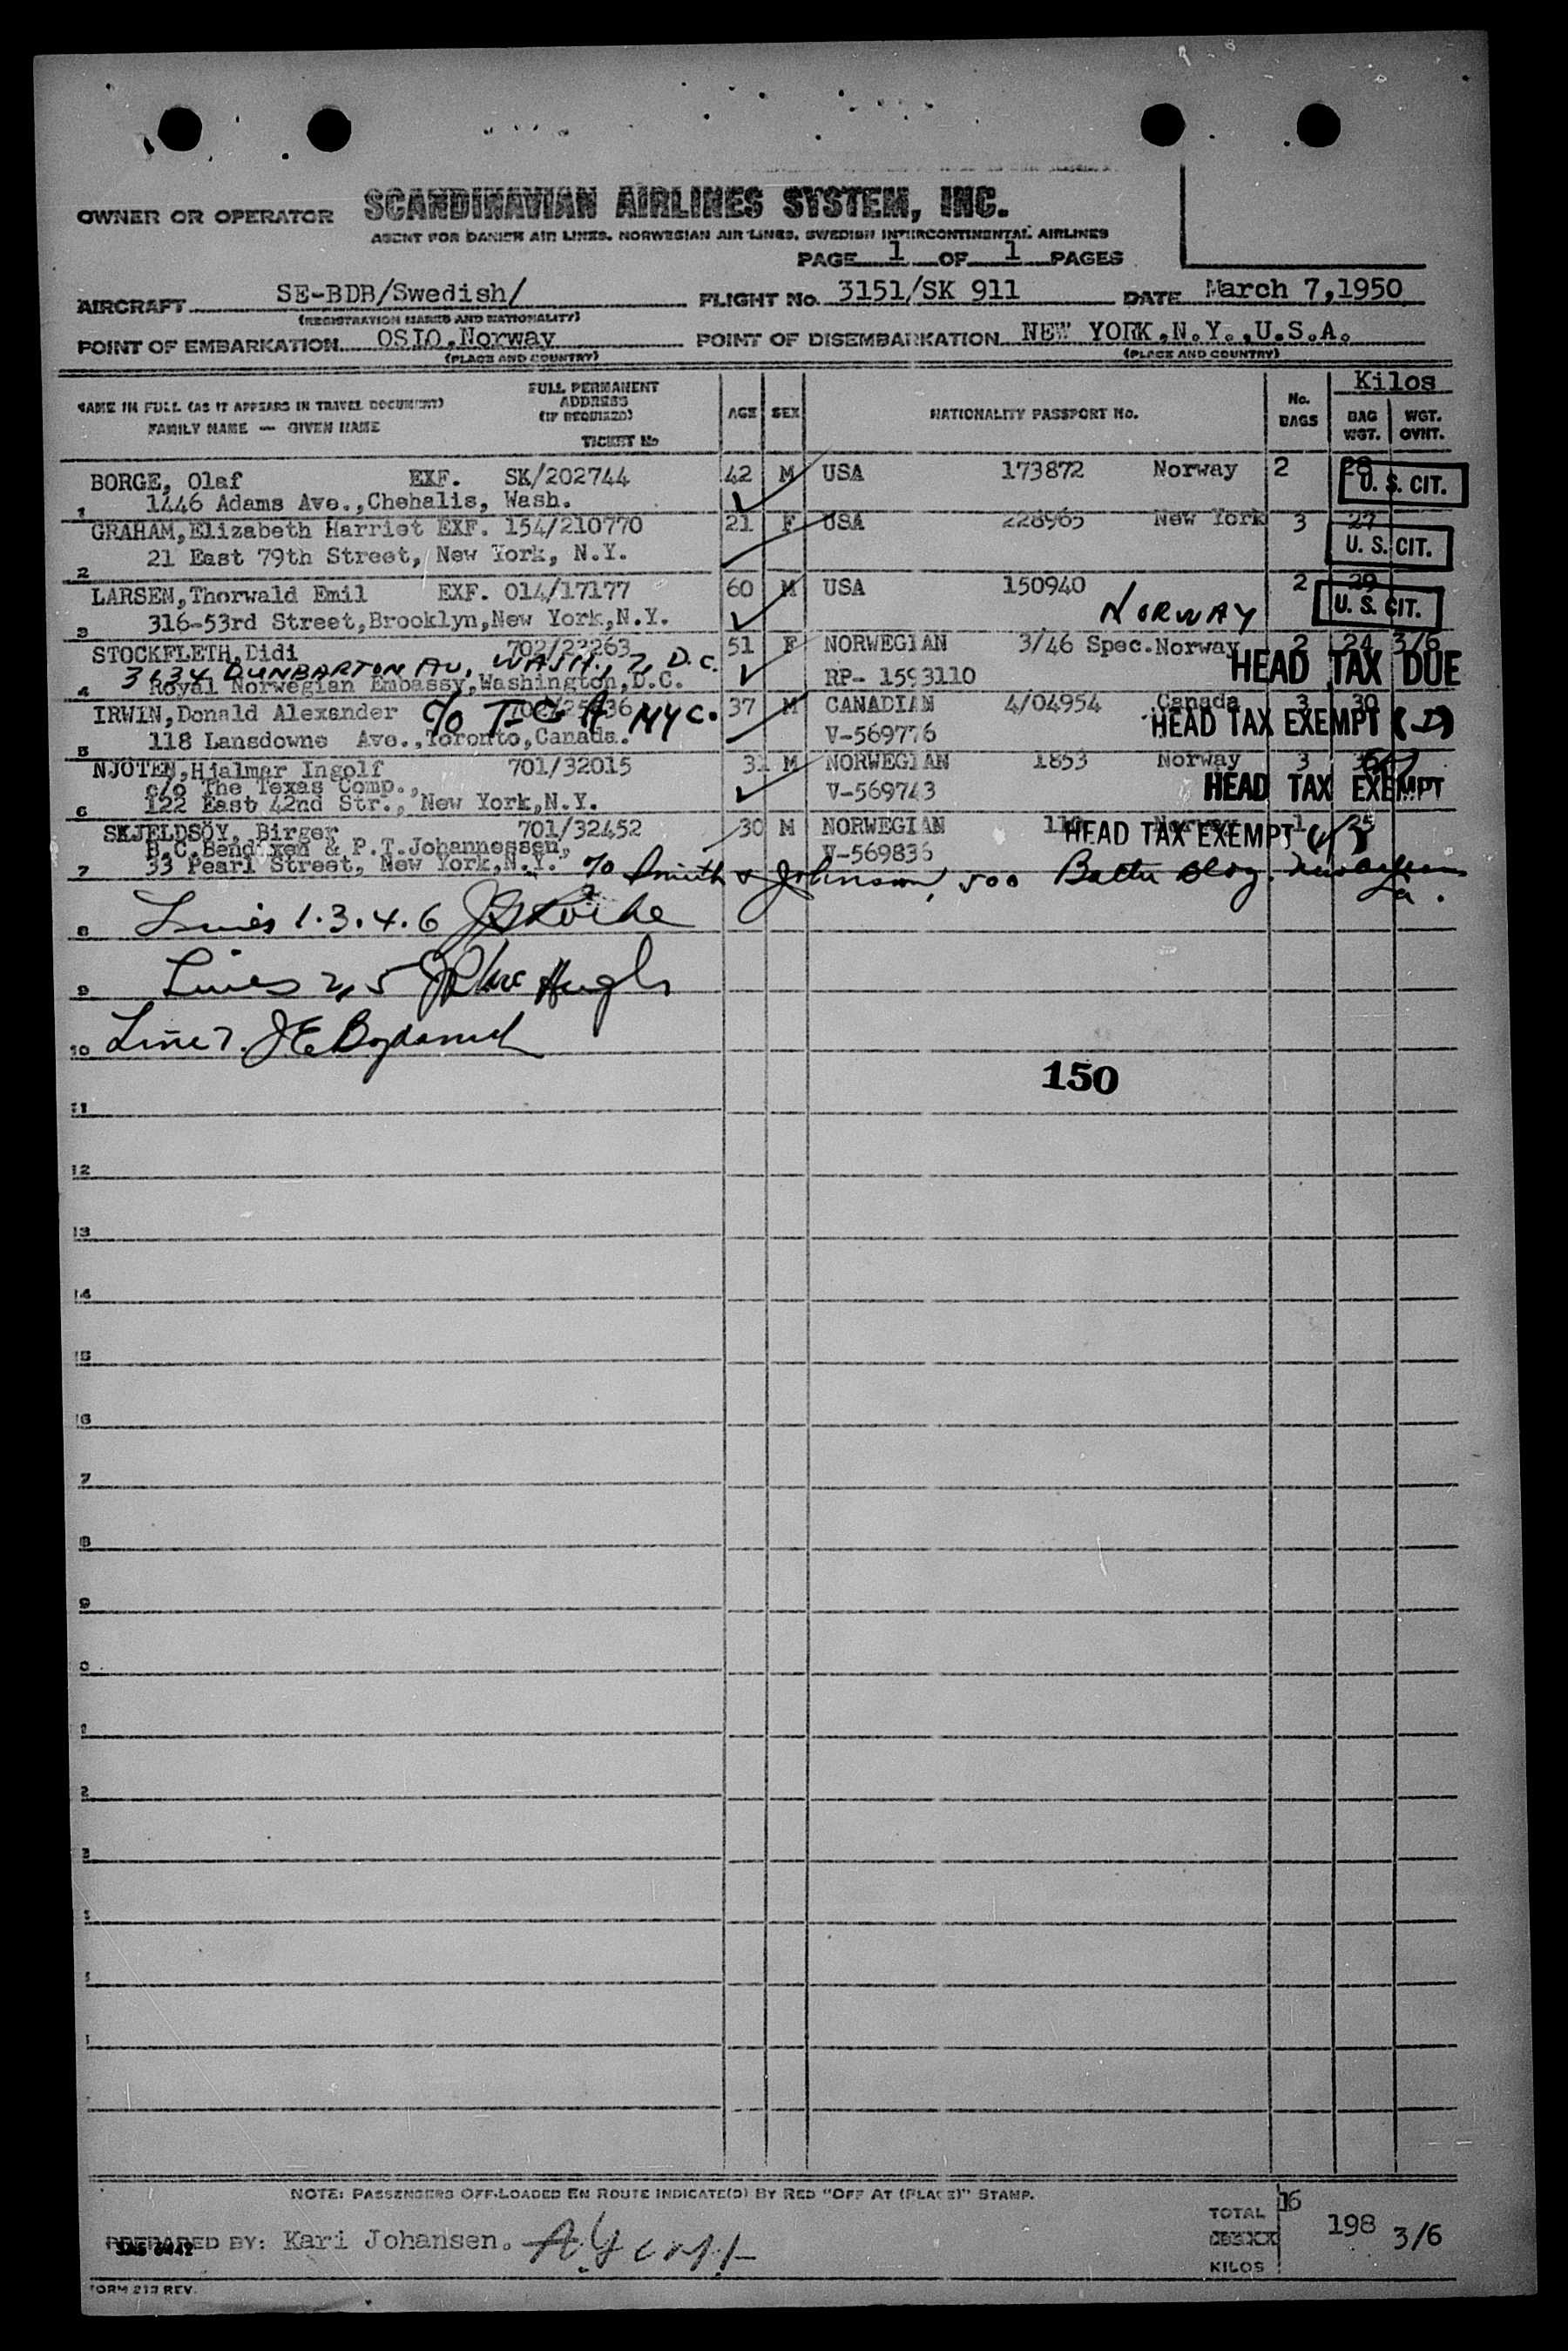 OWNER OR OPERATOR SCANDINAVIAN AIRLINES SYSTEM, INC.
AGENT FOR DANISH AIR LINES, NORWEGIAN AIR LINES, SWEDISH INTERCONTINENTAL AIRLINES
PAGE 1 OF 1 PAGES
AIRCRAFT SE-BDB/Swedish/ FLIGHT No. 3151/SK 911 DATE March 7,1950
(REGISTRATION MARKS AND NATIONALITY)
POINT OF EMBARKATION OSLO,Norway POINT OF DISEMBARKATION NEW YORK,N.Y.,U.S.A.
(PLACE AND COUNTRY) (PLACE AND COUNTRY)
Kilos
NAME IN FULL (AS IT APPEARS IN TRAVEL DOCUMENT) FULL PERMANENT ADDRESS (IF REQUIRED) AGE SEX NATIONALITY PASSPORT No. No. BAGS BAG WGT. WGT. OVHT.
FAMILY NAME — GIVEN NAME TICKET No
BORGE, Olaf EXF. SK/202744 42 M USA 173872 Norway 2 28
1 1446 Adams Ave.,Chehalis, Wash. U. S. CIT.
GRAHAM,Elizabeth Harriet EXF. 154/210770 21 F USA 228965 New York 3 27
2 21 East 79th Street, New York, N.Y. U. S. CIT.
LARSEN,Thorwald Emil EXF. 014/17177 60 M USA 150940 NORWAY 2 29
3 316-53rd Street,Brooklyn,New York,N.Y. U. S. CIT.
STOCKFLETH,Didi 702/23263 51 F NORWEGIAN 3/46 Spec.Norway 2 24 3/6
3634 DUNBARTON AV, WASH., 7, D.C. HEAD TAX DUE
4 Royal Norwegian Embassy,Washington,D.C. RP- 1593110
IRWIN,Donald Alexander c/o T-G A. NYC. 37 M CANADIAN 4/04954 Canada 3 30
5 118 Lansdowne Ave.,Toronto,Canada. V-569776 HEAD TAX EXEMPT
NJOTEN,Hjalmar Ingolf 701/32015 31 M NORWEGIAN 1853 Norway 3
c/o The Texas Comp.,
6 122 East 42nd Str., New York,N.Y. V-569743 HEAD TAX EXEMPT
SKJELDSÖY, Birger 701/32452 30 M NORWEGIAN Norway 1
B.C.Bendixen & P.T.Johannessen, HEAD TAX EXEMPT
7 33 Pearl Street, New York,N.Y. V-569836
c/o Smith & Johnson, 500 Bldg. New Orleans La.
8 Lines 1.3.4.6
9 Lines 2,5
10 Line 7.
150
11
12
13
14
15
16
7
8
9
0
1
2
3
NOTE: PASSENGERS OFF-LOADED EN ROUTE INDICATE(D) BY RED "OFF AT (PLACE)" STAMP.
PREPARED BY: Kari Johansen. Agent TOTAL KILOS 16 198 3/6
SAS 6442
FORM 213 REV.